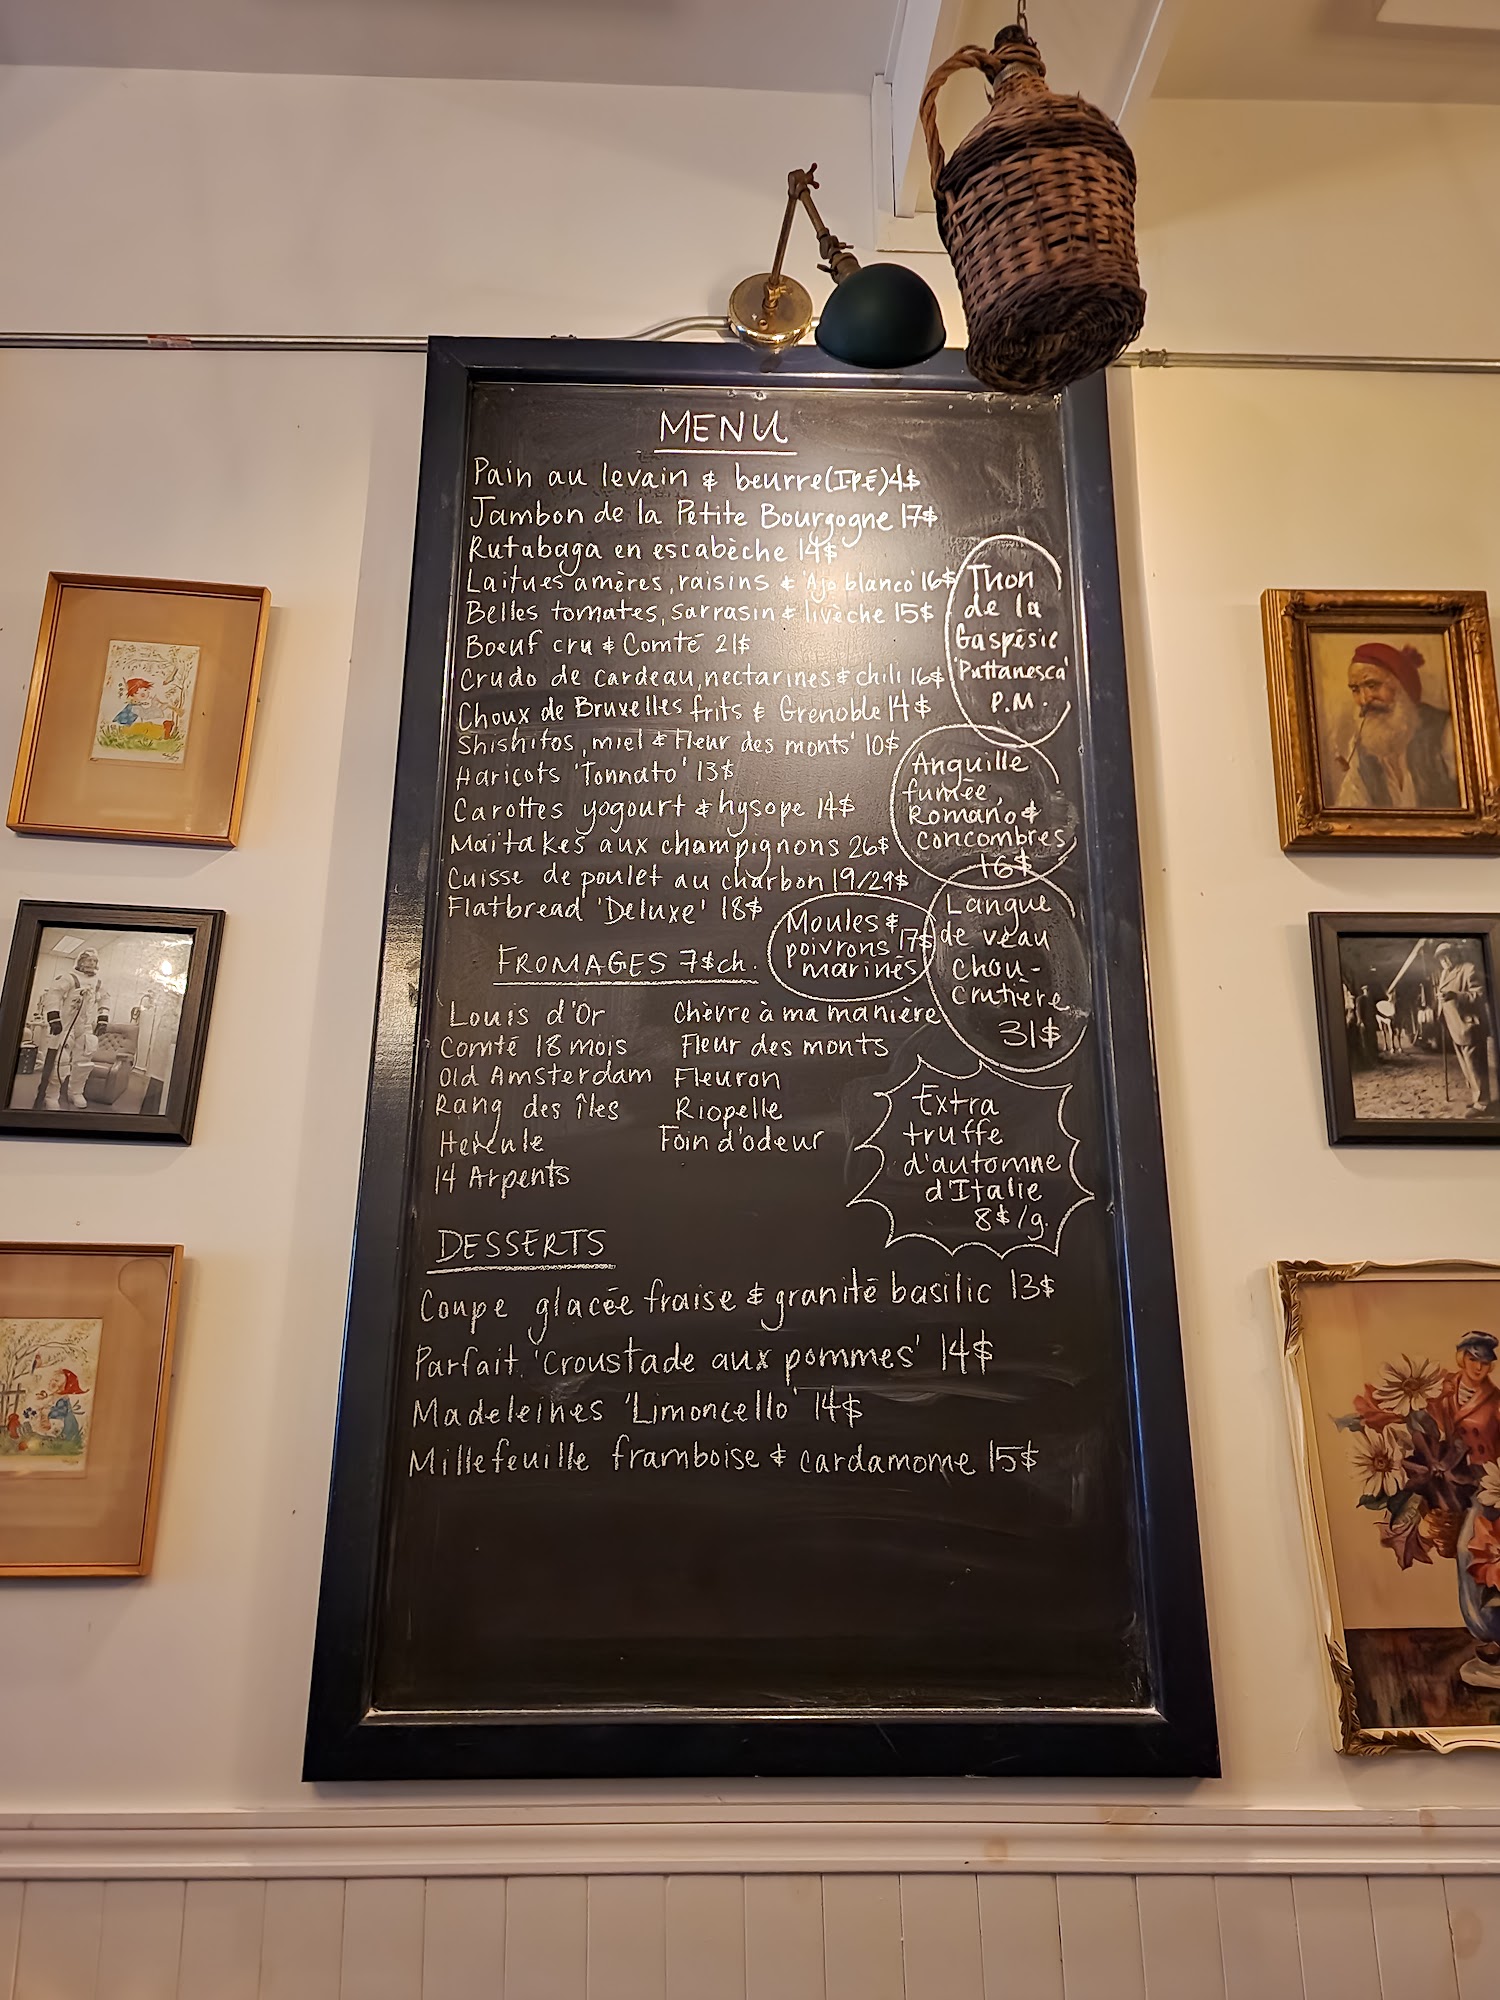 MENU
Pain au levain & beurre (IPÉ) 4$
Jambon de la Petite Bourgogne 17$
Rutabaga en escabèche 14$
Laitues amères, raisins & 'Ajo blanco' 16$
Belles tomates, sarrasin & livèche 15$
Boeuf cru & Comté 21$
Crudo de cardeau, nectarines & chili 16$
Choux de Bruxelles frits & Grenoble 14$
Shishitos, miel & 'Fleur des monts' 10$
Haricots 'Tonnato' 13$
Carottes yogourt & hysope 14$
Maïtakes aux champignons 26$
Cuisse de poulet au charbon 19/29$
Flatbread 'Deluxe' 18$
Thon
de la
Gaspésie
'Puttanesca'
P.M.
Anguille
fumée,
Romano &
concombres
16$
Moules &
poivrons 17$
marinés
Langue
de veau
chou-
crutière
31$
FROMAGES 7$ch.
Louis d'Or
Comté 18 mois
Old Amsterdam
Rang des îles
Hercule
14 Arpents
Chèvre à ma manière
Fleur des monts
Fleuron
Riopelle
Foin d'odeur
Extra
truffe
d'automne
d'Italie
8$/g.
DESSERTS
Coupe glacée fraise & granité basilic 13$
Parfait 'Croustade aux pommes' 14$
Madeleines 'Limoncello' 14$
Millefeuille framboise & cardamome 15$